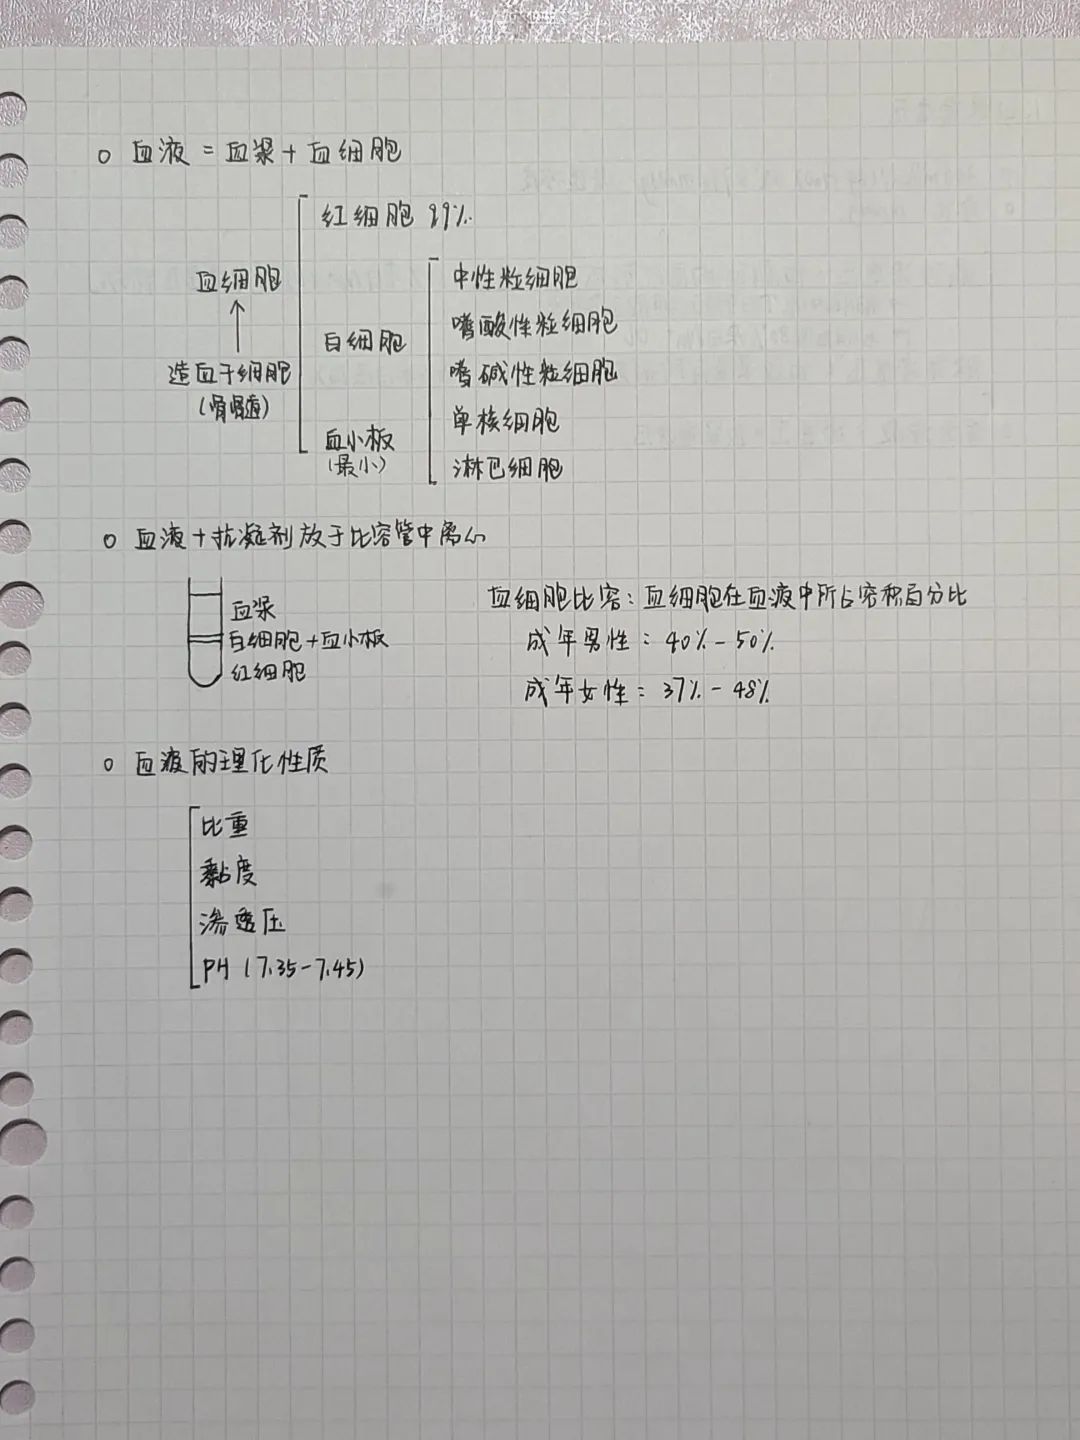 血液 = 血浆 + 血细胞
红细胞 99%
血细胞
中性粒细胞
嗜酸性粒细胞
白细胞
造血干细胞
嗜碱性粒细胞
(骨髓)
单核细胞
血小板
(最小)
淋巴细胞
血液 + 抗凝剂放于比容管中离心
血浆
白细胞 + 血小板
红细胞
血细胞比容: 血细胞在血液中所占容积百分比
成年男性: 40% - 50%
成年女性: 37% - 48%
血液的理化性质
比重
黏度
渗透压
PH (7.35-7.45)